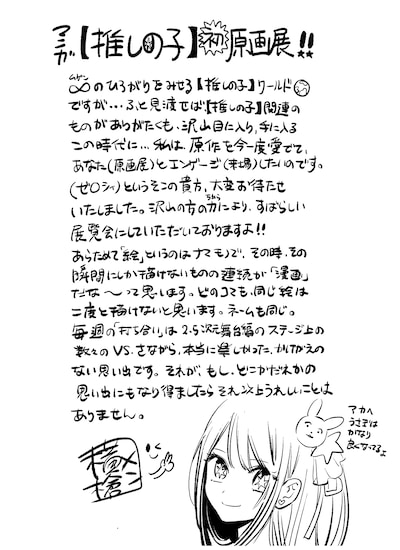 マンガ【推しの子】㊗原画展!!
∞のひろがりをみせる【推しの子】ワールド
ですが…ふと見渡せば【推しの子】関連の
ものがありがたくも、沢山目に入り、手に入る
この時代に…私は、原作を今一度愛でて、
あなた(原画展)とエンゲージ(来場)したいのです。
(ゼ〇シィ)というそこの貴方、大変お待たせ
いたしました。沢山の方の力により、すばらしい
展覧会にしていただいておりますよ!!
あらためて「絵」というのはナマモノで、その時、その
瞬間にしか描けないものの連続が「漫画」
だな〜って思います。どのコマも、同じ絵は
二度と描けないと思います。ネームも同じ。
毎週の「打ち合い」は2.5次元舞台編のステージ上の
数々のVS.さながら、本当に楽しかった、かけがえの
ない思い出です。それが、もし、どこかだれかの
思い出にもなり得ましたらそれ以上うれしいことは
ありません。
横槍メンゴ
アカへ
うさぎは
かなり
良くなってるよ